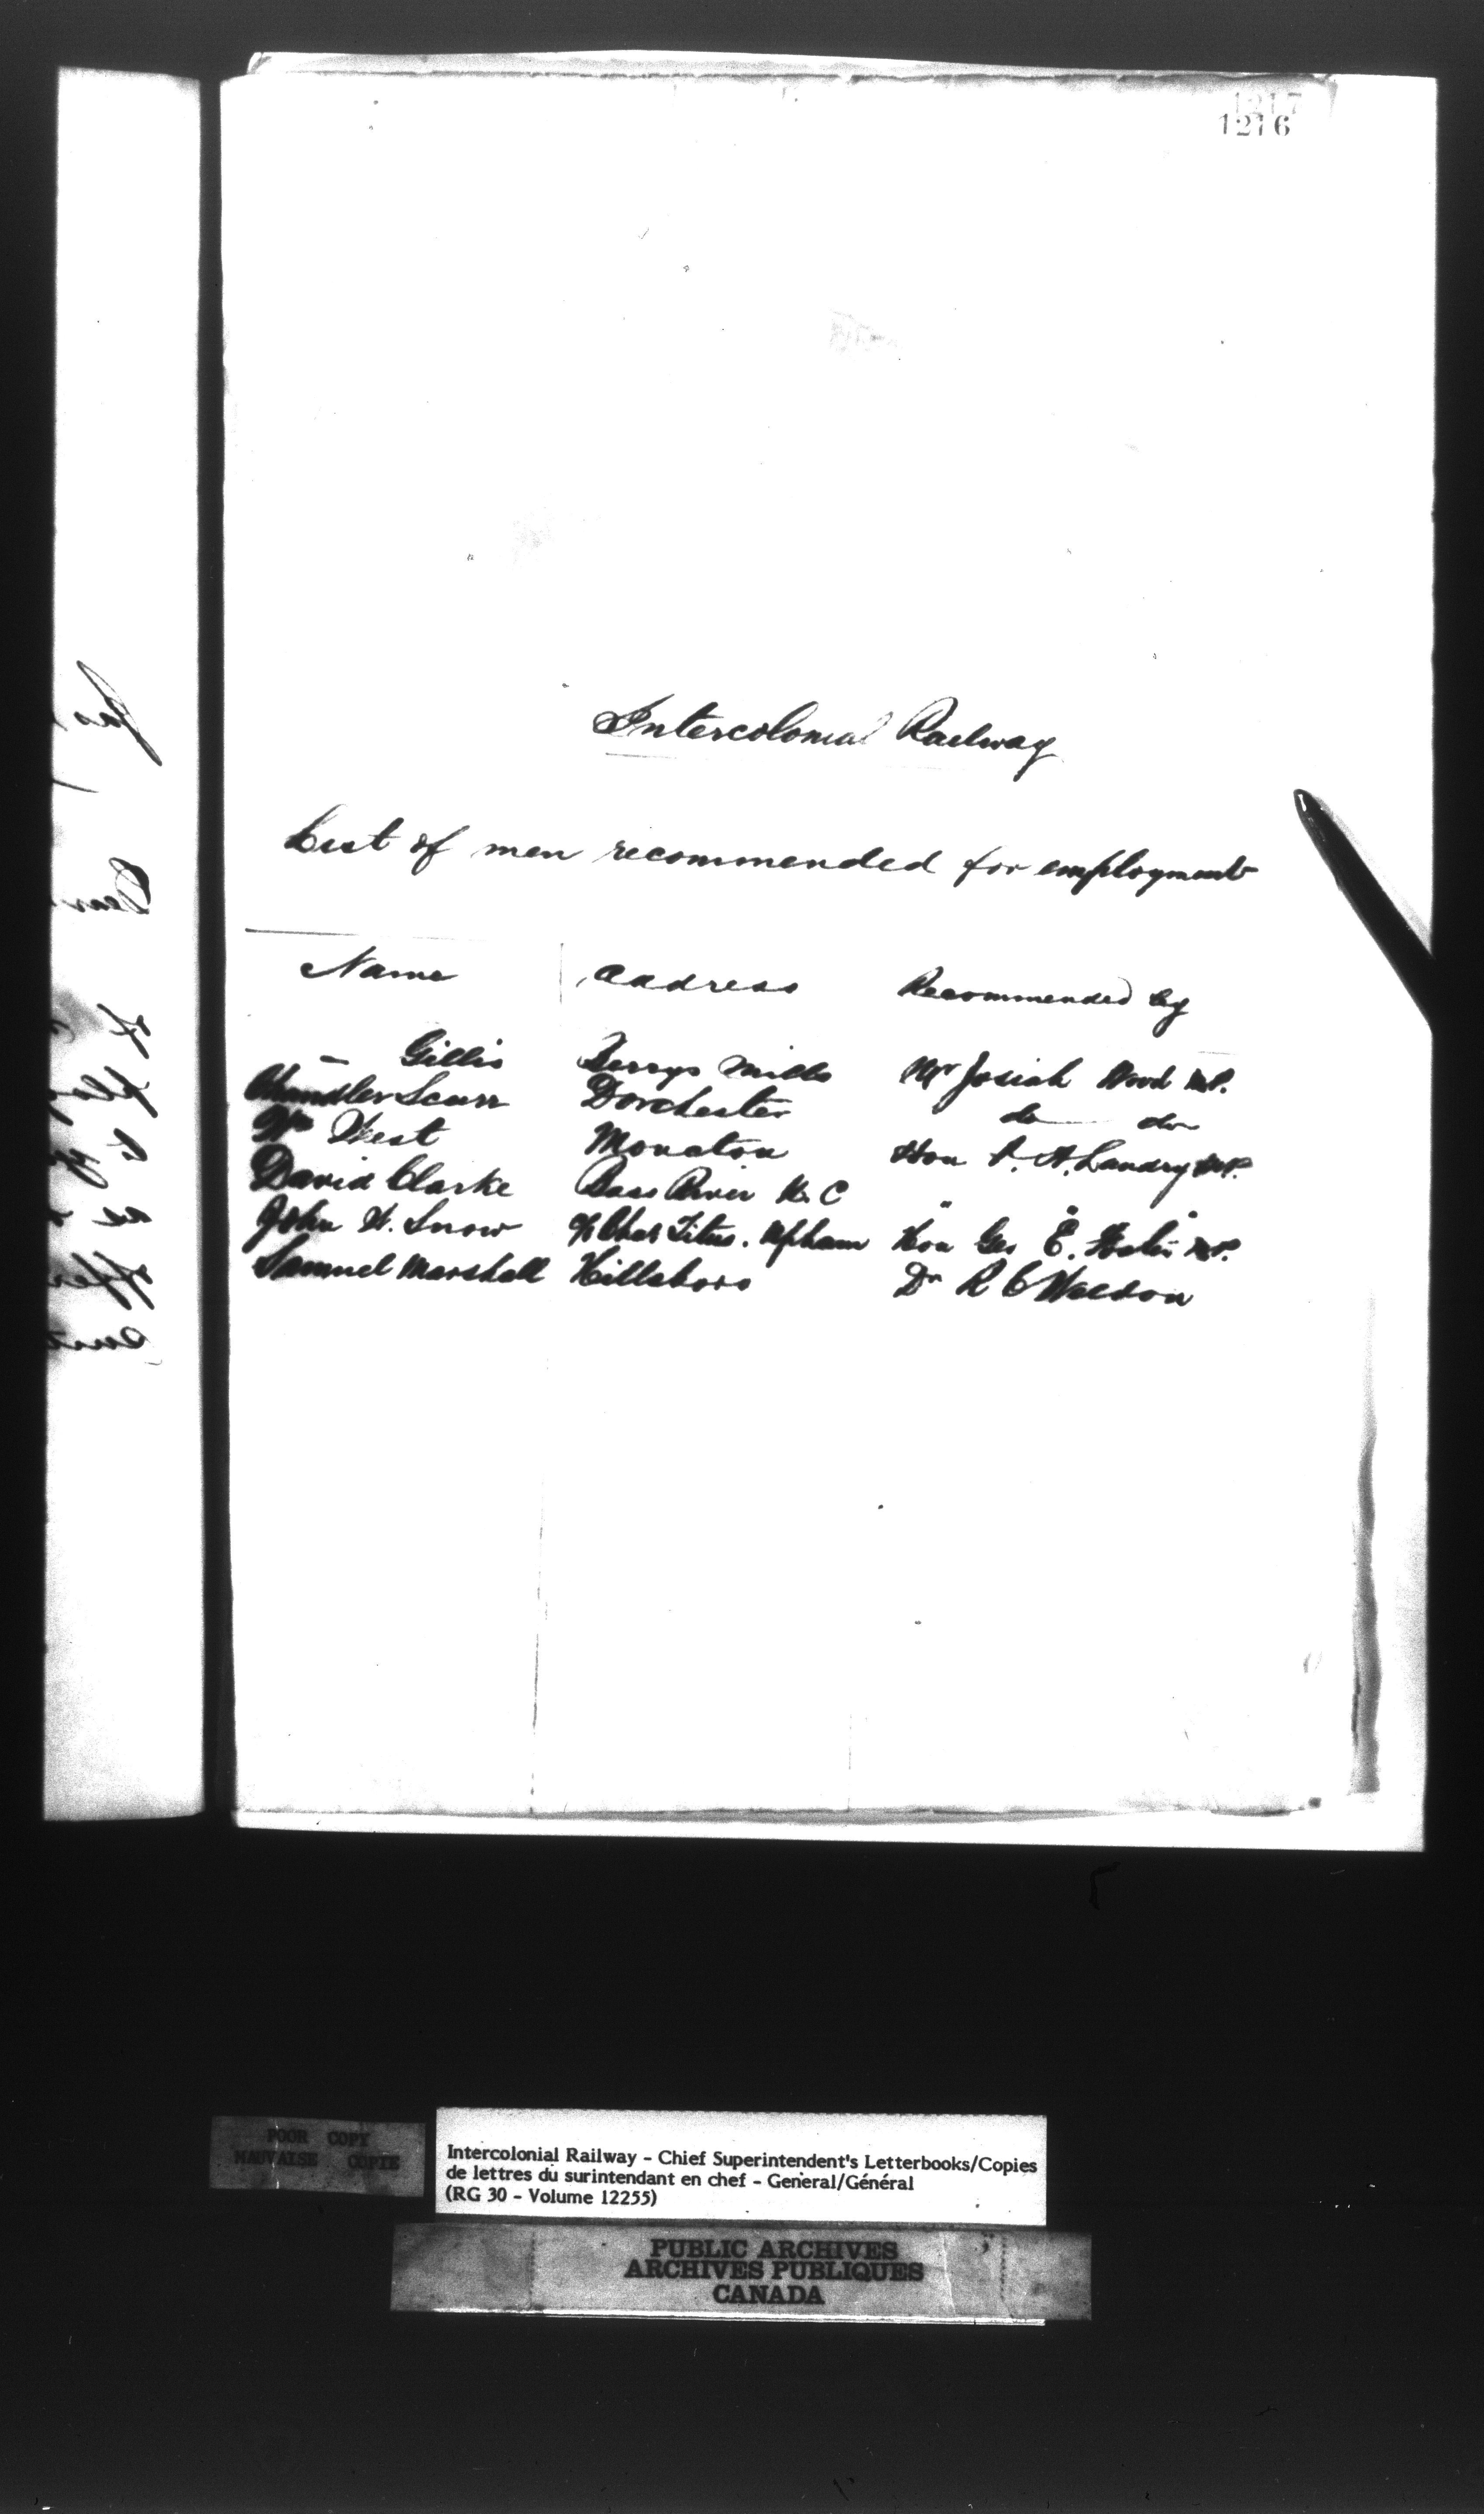 1217
1216
Intercolonial Railway
List of men recommended for employment
Name Address Recommended by
— Gillis Berrys Mills Mr Josiah Wood M.P.
Chandler Scurr Dorchester do do
Wm West Moncton Hon P. A. Landry M.P.
David Clarke Bass River K. C " " "
John W. Snow % Chas Titus. Upham Hon Geo E. Foster M.P.
Samuel Marshall Hillsboro Dr R C Weldon
POOR COPY
MAUVAISE COPIE
Intercolonial Railway - Chief Superintendent's Letterbooks/Copies
de lettres du surintendant en chef - General/Général
(RG 30 - Volume 12255)
PUBLIC ARCHIVES
ARCHIVES PUBLIQUES
CANADA